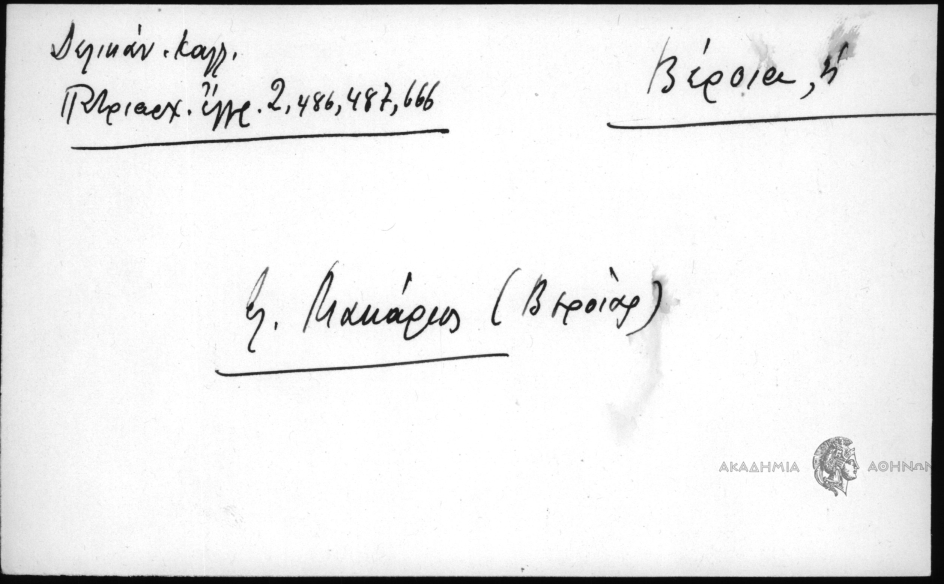 Δελικάν. Καλλ.
Πατριαρχ. ἔγγρ. 2, 486, 487, 666
Βέροια, ἡ
Μακάριος (Βεροίας)
ΑΚΑΔΗΜΙΑ ΑΘΗΝΩΝ